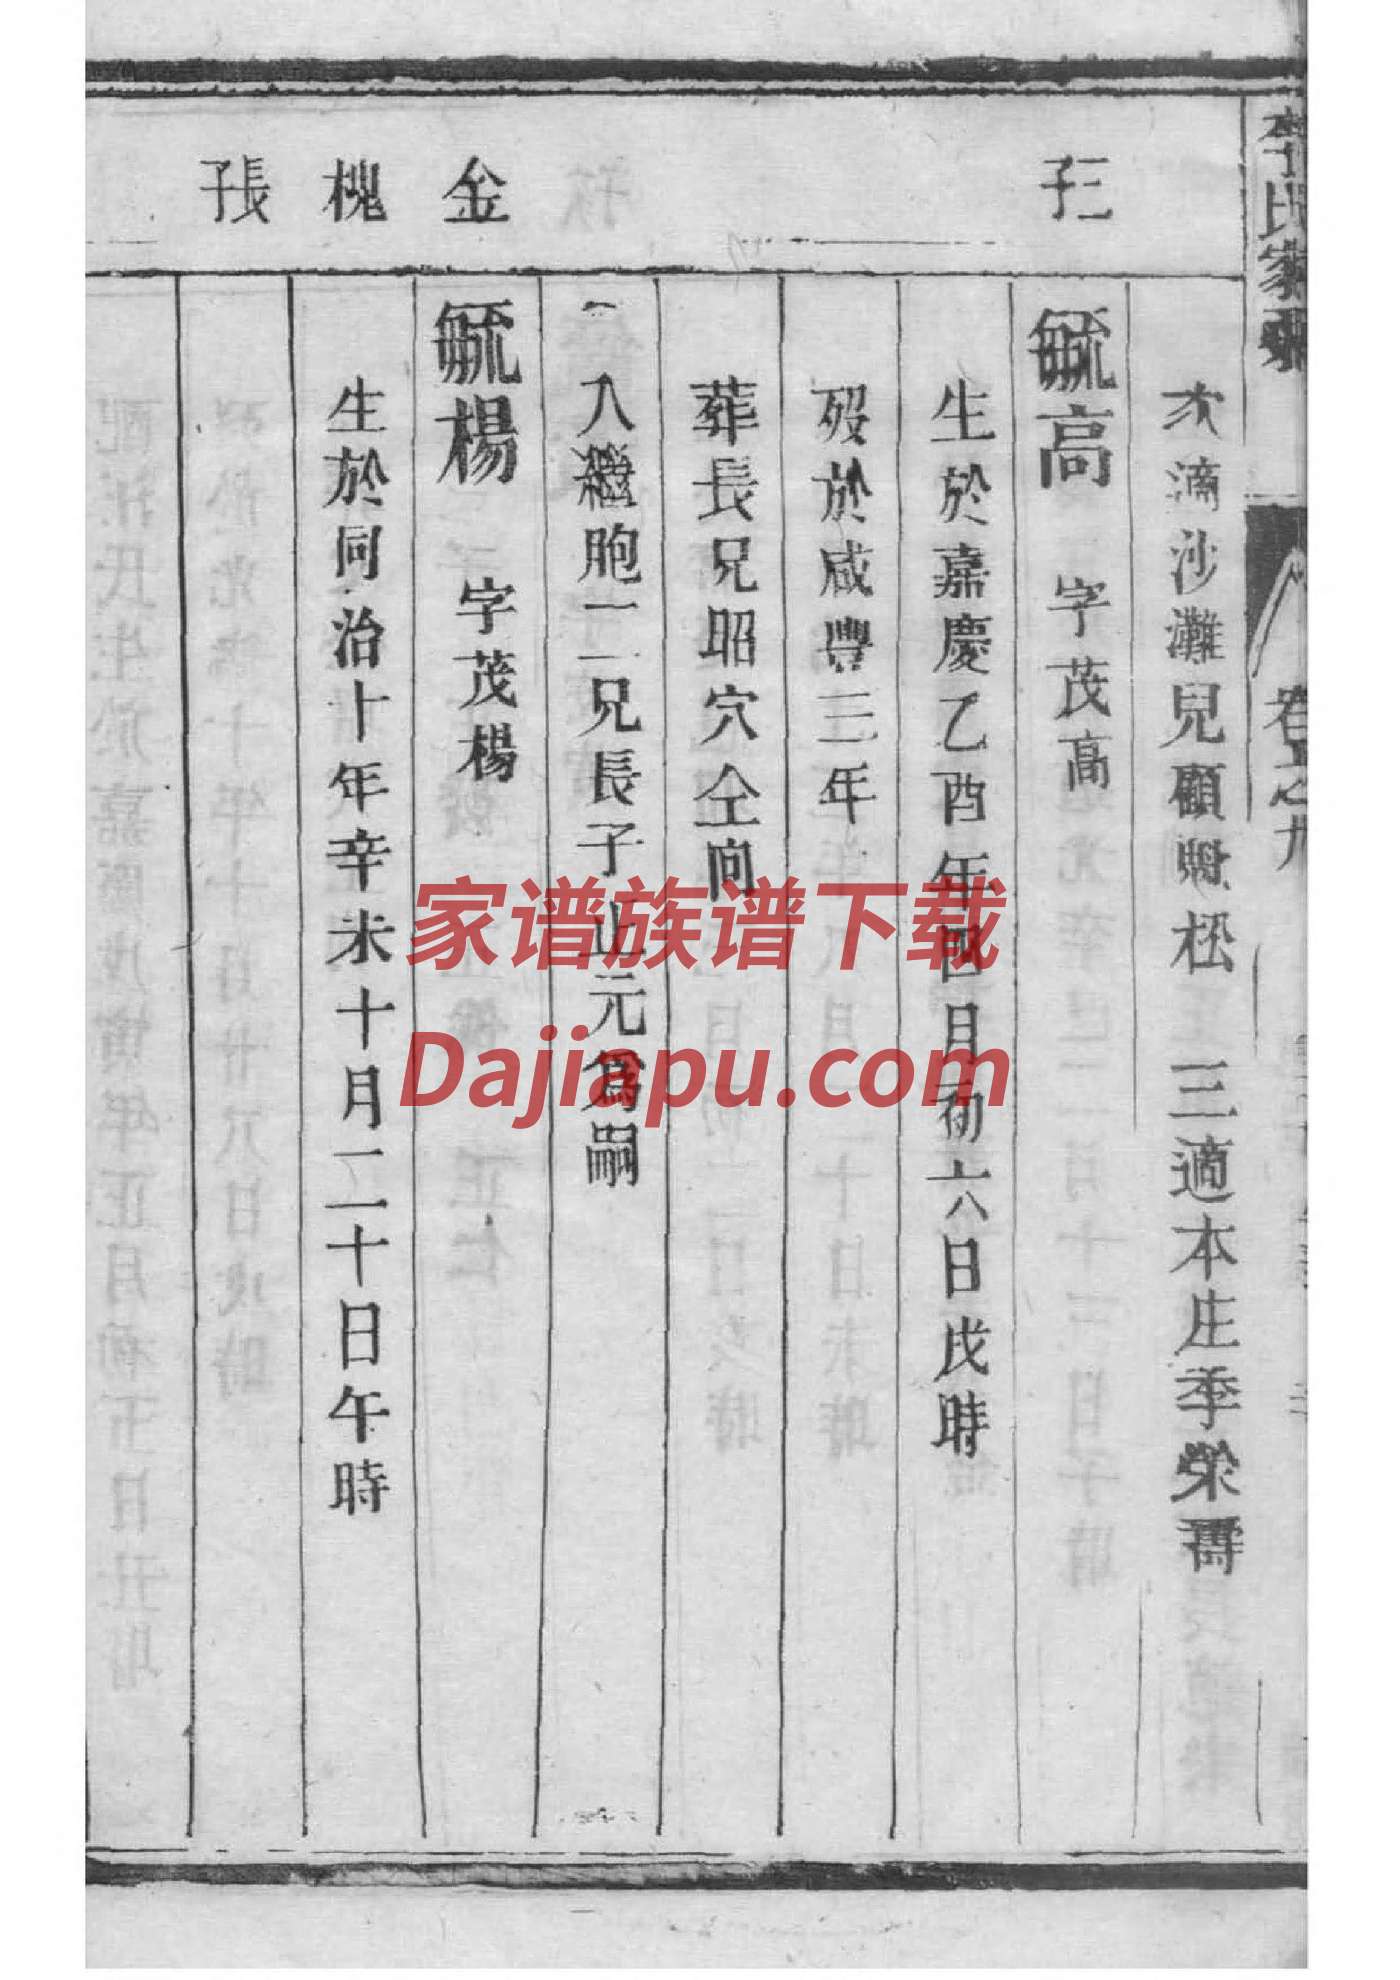 李氏家乘
卷五之九
次滴沙灘兒顧興松 三適本庄季榮壽
三子
毓高 字茂高
生於嘉慶乙酉年四月初六日戌時
歿於咸豐三年
葬長兄昭穴仝向
入繼胞二兄長子山元爲嗣
金槐長子
毓楊 字茂楊
生於同治十年辛未十月二十日午時
家谱族谱下载
Dajiapu.com